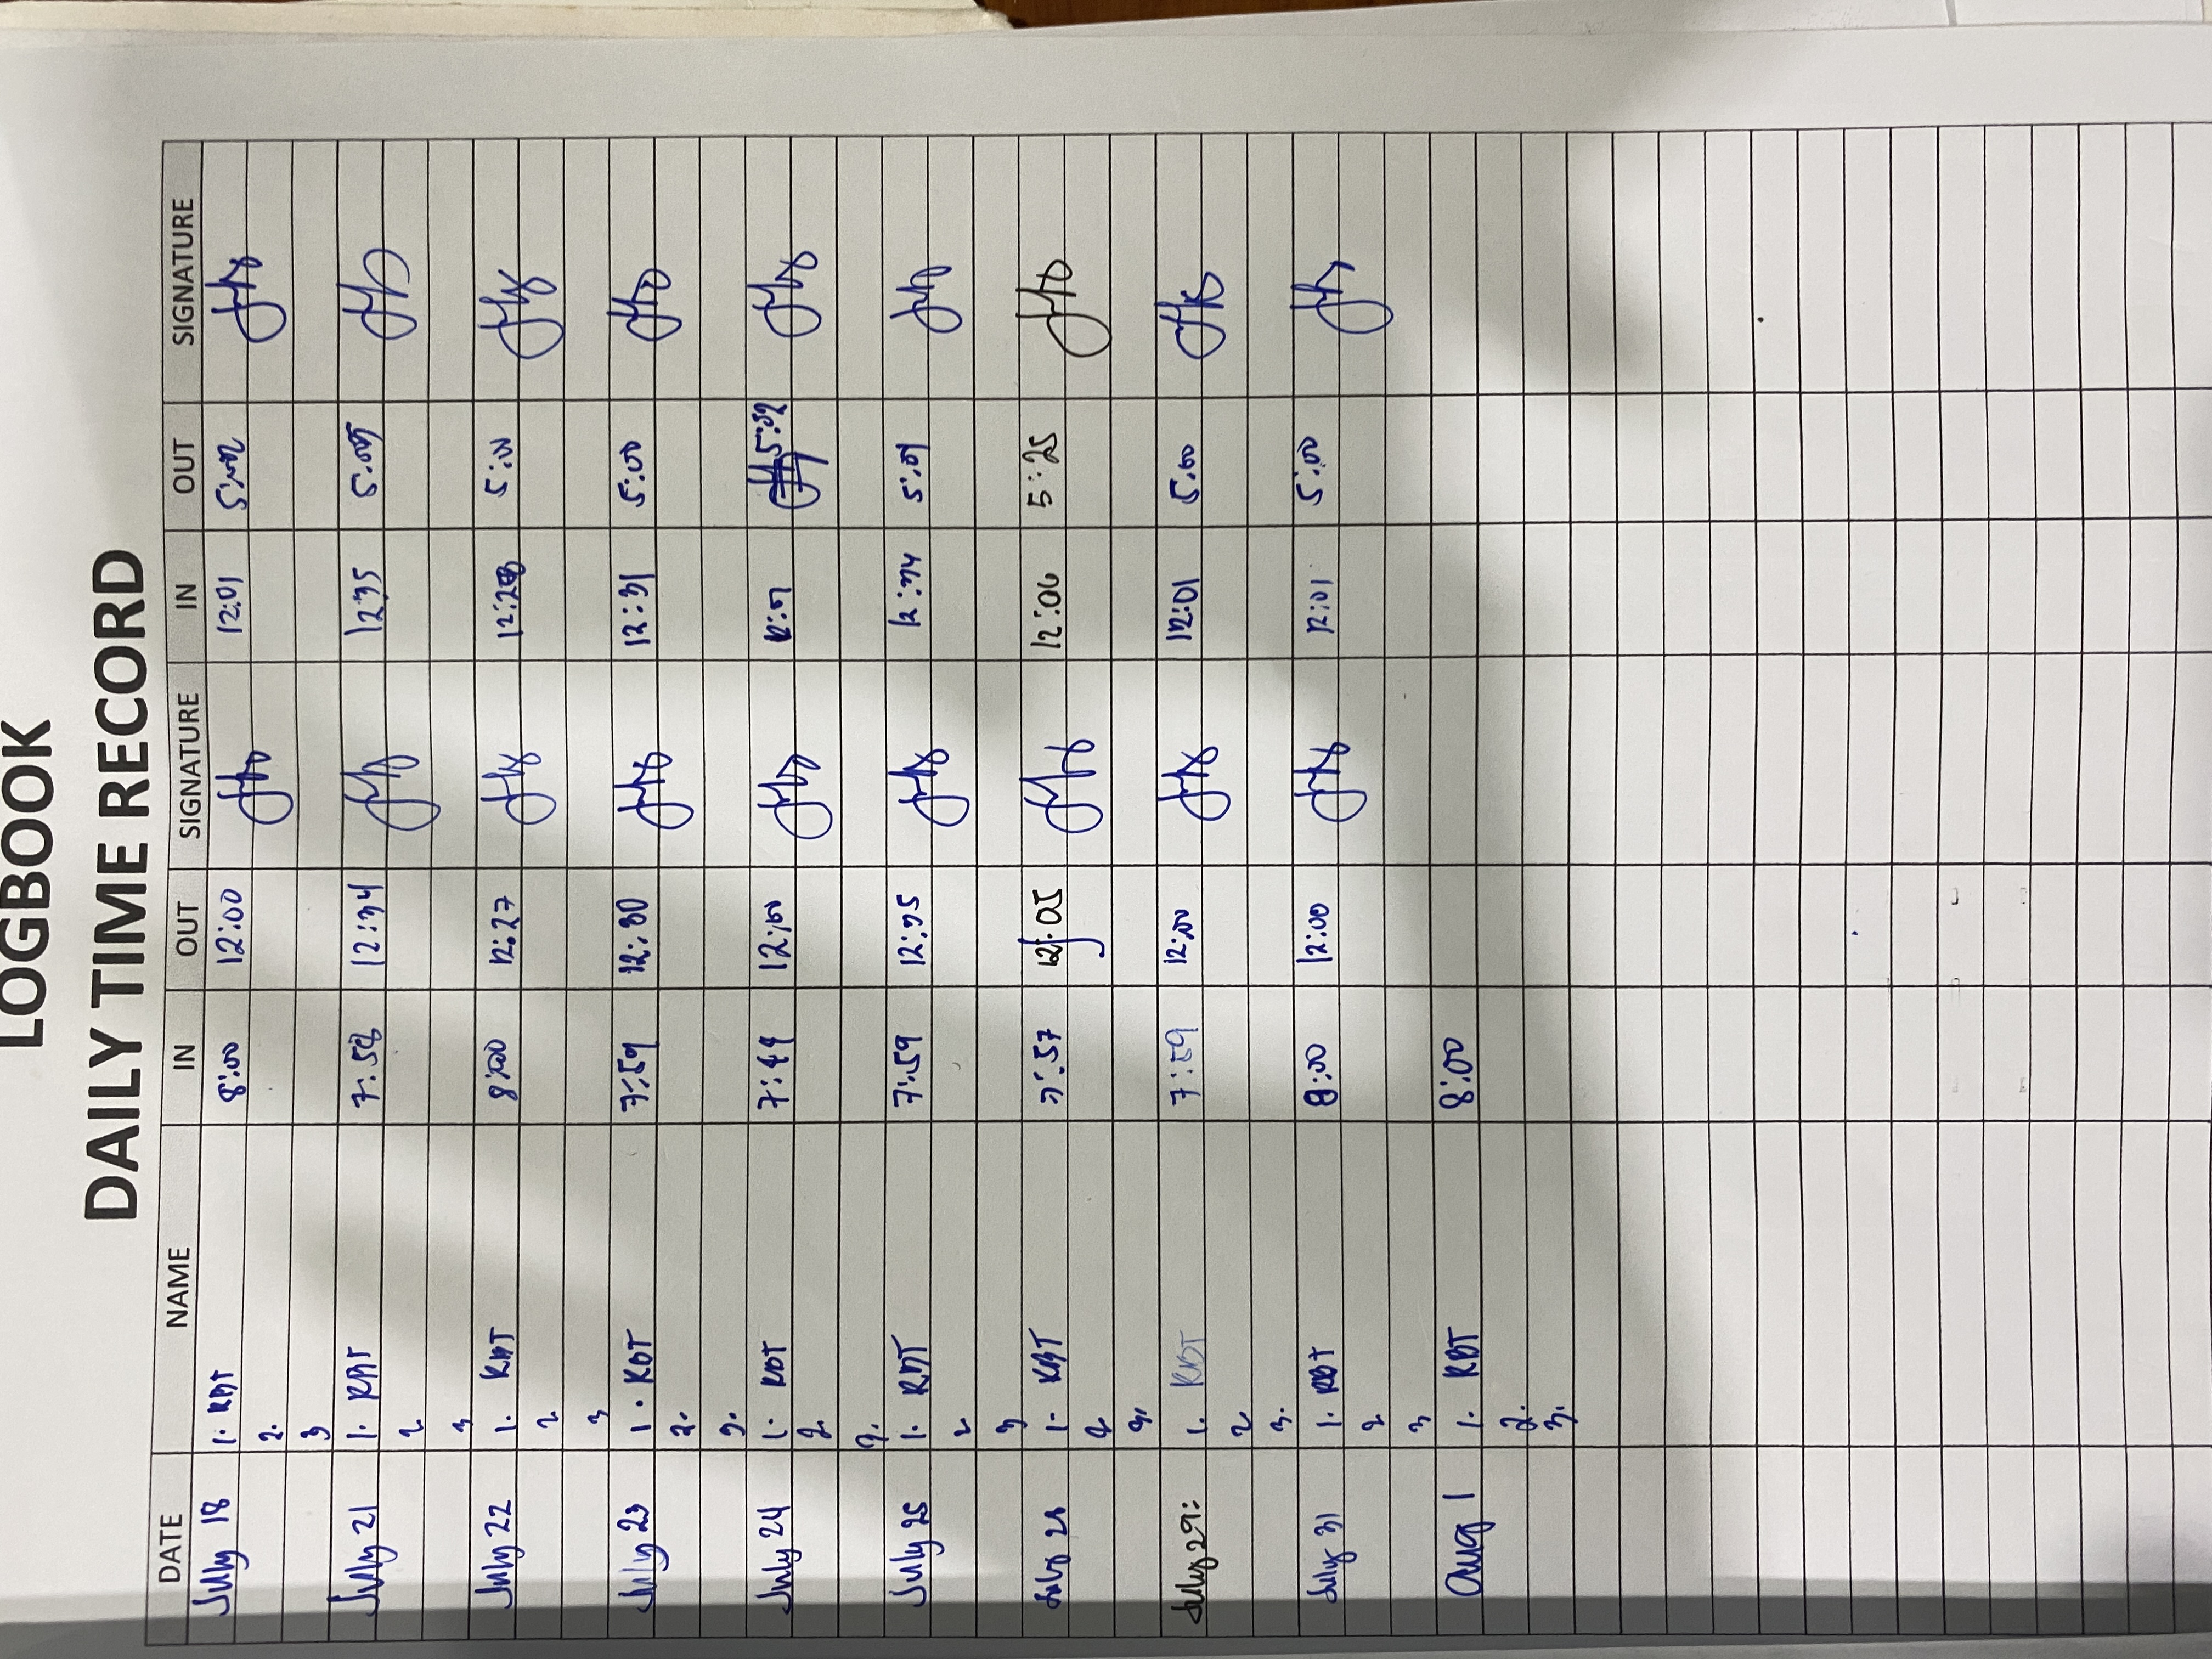 LOGBOOK
DAILY TIME RECORD
DATE NAME IN OUT SIGNATURE IN OUT SIGNATURE
July 18 1. RBT 8:00 12:00 12:01 5:02
2.
3
July 21 1. RBT 7:58 12:34 12:35 5:05
2
3
July 22 1. RBT 8:00 12:27 12:28 5:01
2
3
July 23 1. RBT 7:59 12:30 12:31 5:00
2.
3.
July 24 1. RBT 7:49 12:00 12:01 5:02
2.
3.
July 25 1. RBT 7:59 12:35 5:01
2
3
July 28 1. RBT 7:57 12:05 12:06 5:25
2
3.
July 29: 1. RBT 7:59 12:00 12:01 5:00
2
3.
July 31 1. RBT 8:00 12:00 12:01 5:00
2
3
Aug 1 1. RBT 8:00
2.
3.